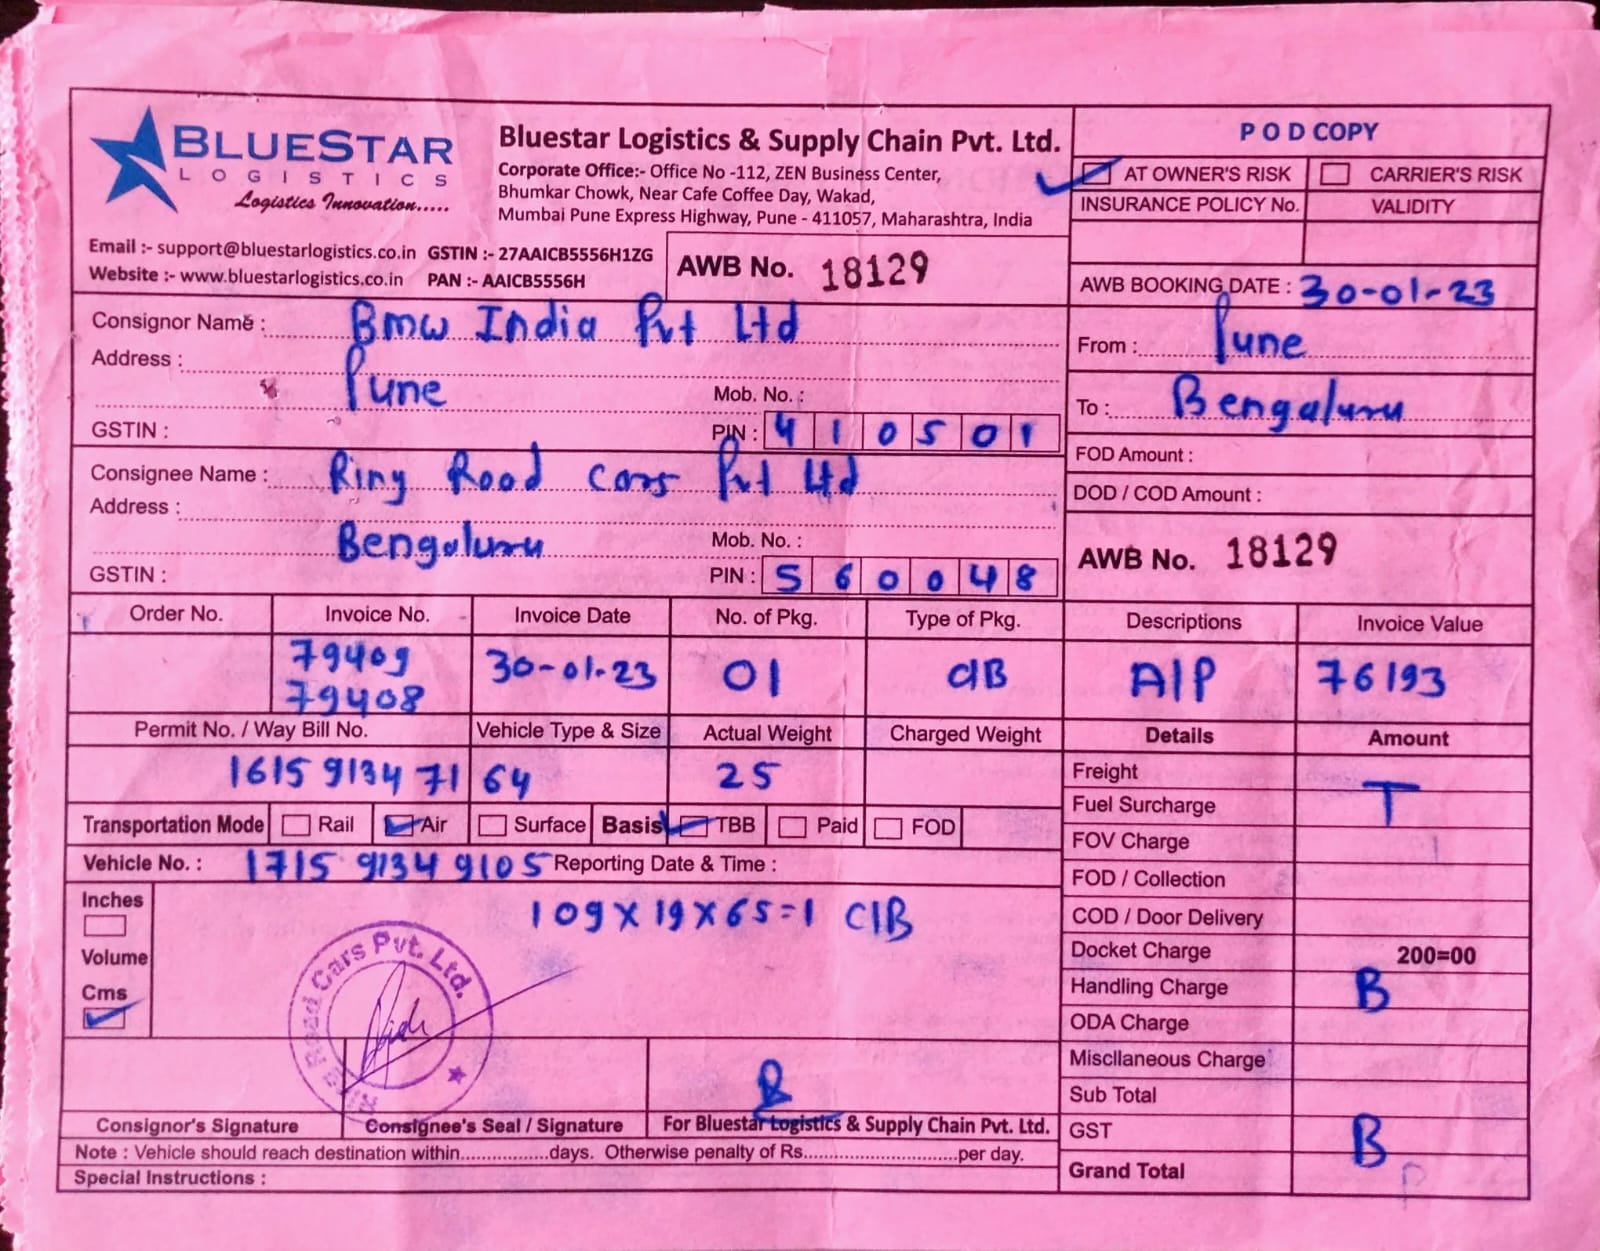 BLUESTAR
LOGISTICS
Logistics Innovation.....
Bluestar Logistics & Supply Chain Pvt. Ltd.
Corporate Office:- Office No -112, ZEN Business Center,
Bhumkar Chowk, Near Cafe Coffee Day, Wakad,
Mumbai Pune Express Highway, Pune - 411057, Maharashtra, India
Email :- support@bluestarlogistics.co.in GSTIN :- 27AAICB5556H1ZG
Website :- www.bluestarlogistics.co.in PAN :- AAICB5556H
AWB No. 18129
POD COPY
AT OWNER'S RISK CARRIER'S RISK
INSURANCE POLICY No. VALIDITY
AWB BOOKING DATE : 30-01-23
From : Pune
To : Bengaluru
FOD Amount :
DOD / COD Amount :
AWB No. 18129
Consignor Name : Bmw India Pvt Ltd
Address :
Pune
Mob. No. :
GSTIN : PIN : 410501
Consignee Name : Ring Road Cars Pvt Ltd
Address :
Bengaluru
Mob. No. :
GSTIN : PIN : 560048
Order No. Invoice No. Invoice Date No. of Pkg. Type of Pkg. Descriptions Invoice Value
79409
79408 30-01-23 01 CIB AIP 76193
Permit No. / Way Bill No. Vehicle Type & Size Actual Weight Charged Weight
1615 9134 71 64 25
Transportation Mode Rail Air Surface Basis TBB Paid FOD
Vehicle No. : 1715 9134 9105 Reporting Date & Time :
Inches
Volume
Cms
109 X 19 X 65 = 1 CIB
Road Cars Pvt. Ltd.
Consignor's Signature Consignee's Seal / Signature For Bluestar Logistics & Supply Chain Pvt. Ltd.
Note : Vehicle should reach destination within.................days. Otherwise penalty of Rs..............................per day.
Special Instructions :
Details Amount
Freight
Fuel Surcharge T
FOV Charge
FOD / Collection
COD / Door Delivery
Docket Charge 200=00
Handling Charge B
ODA Charge
Miscllaneous Charge
Sub Total
GST B
Grand Total